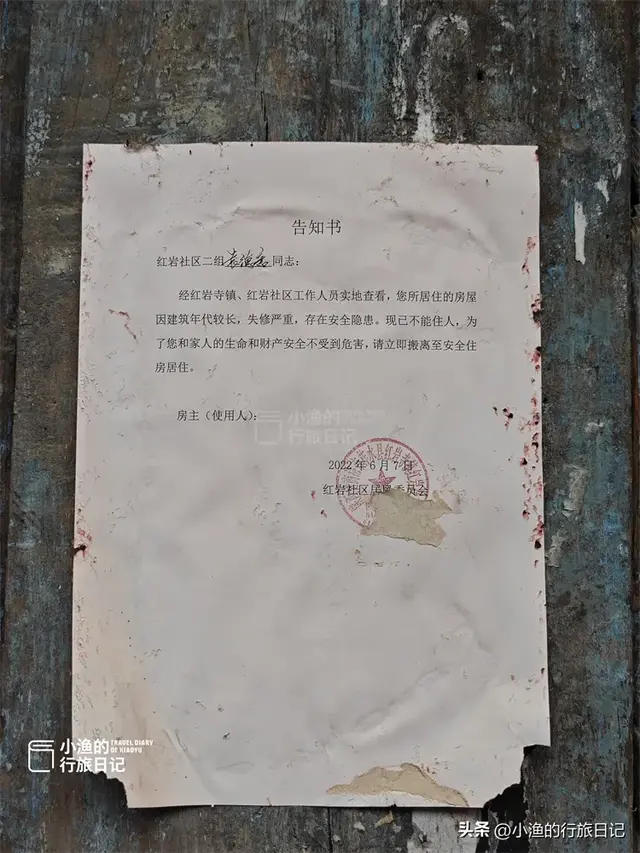 告知书
红岩社区二组 同志：
经红岩寺镇、红岩社区工作人员实地查看，您所居住的房屋
因建筑年代较长，失修严重，存在安全隐患。现已不能住人，为
了您和家人的生命和财产安全不受到危害，请立即搬离至安全住
房居住。
房主（使用人）：
小渔的
行旅日记
2022年6月7日
红岩社区居民委员会
小渔的
TRAVEL DIARY
OF XIAOYU
行旅日记
头条 @小渔的行旅日记